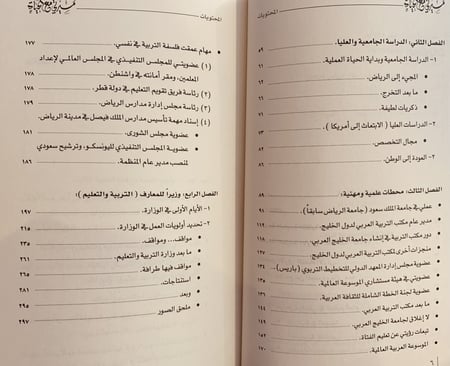 المحتويات
الفصل الثاني: الدراسة الجامعية والعليا. ٥٩
١- الدراسة الجامعية وبداية الحياة العملية. ٦٠
• المجيء إلى الرياض.
• ما بعد التخرج.
• ذكريات لطيفة.
٢- الدراسات العليا ( الابتعاث إلى أمريكا ).
• مجال التخصص.
٣- العودة إلى الوطن.
الفصل الثالث: محطات علمية ومهنية: ٨٩
• عملي في جامعة الملك سعود ( جامعة الرياض سابقاً ).
• مدير عام مكتب التربية العربي لدول الخليج.
• دور مكتب التربية في إنشاء جامعة الخليج العربي.
• منجزات أخرى لمكتب التربية العربي لدول الخليج.
• عضوية مجلس إدارة المعهد الدولي للتخطيط التربوي ( باريس ). ١٣٤
• عضويتي في هيئة مستشاري الموسوعة العالمية.
• عضوية لجنة الخطة الشاملة للثقافة العربية.
• ما بعد مكتب التربية العربي.
• لا إغلاق لجامعة الخليج العربي. ١٤٩
• تبعات رؤيتي عن تعليم الفتاة. ١٥٢
• الموسوعة العربية العالمية. ١٧٠
٦
المحتويات
• مهام عمقت فلسفة التربية في نفسي. ١٧٧
(١) عضويتي للمجلس التنفيذي في المجلس العالمي لإعداد
المعلمين، ومقر أمانته في واشنطن. ١٧٨
(٢) رئاسة فريق تقويم التعليم في دولة قطر. ١٧٨
(٣) رئاسة مجلس إدارة مدارس الرياض. ١٧٩
(٤) إسناد مهمة تأسيس مدارس الملك فيصل في مدينة الرياض.
• عضوية مجلس الشورى. ١٨١
• عضوية المجلس التنفيذي لليونسكو، وترشيح سعودي
لمنصب مدير عام المنظمة. ١٨٦
الفصل الرابع: وزيراً للمعارف ( التربية والتعليم ):
١- الأيام الأولى في الوزارة. ١٩٧
٢- تحديد أولويات العمل في الوزارة. ٢١٥
• مواقف.. ومواقف. ٢٣٥
• ما بعد وزارة التربية والتعليم. ٢٦١
• مواقف فيها طرافة. ٢٦٥
• استنتاجات. ٢٨١
• وبعد ٢٩٥
• ملحق الصور ٢٩٧